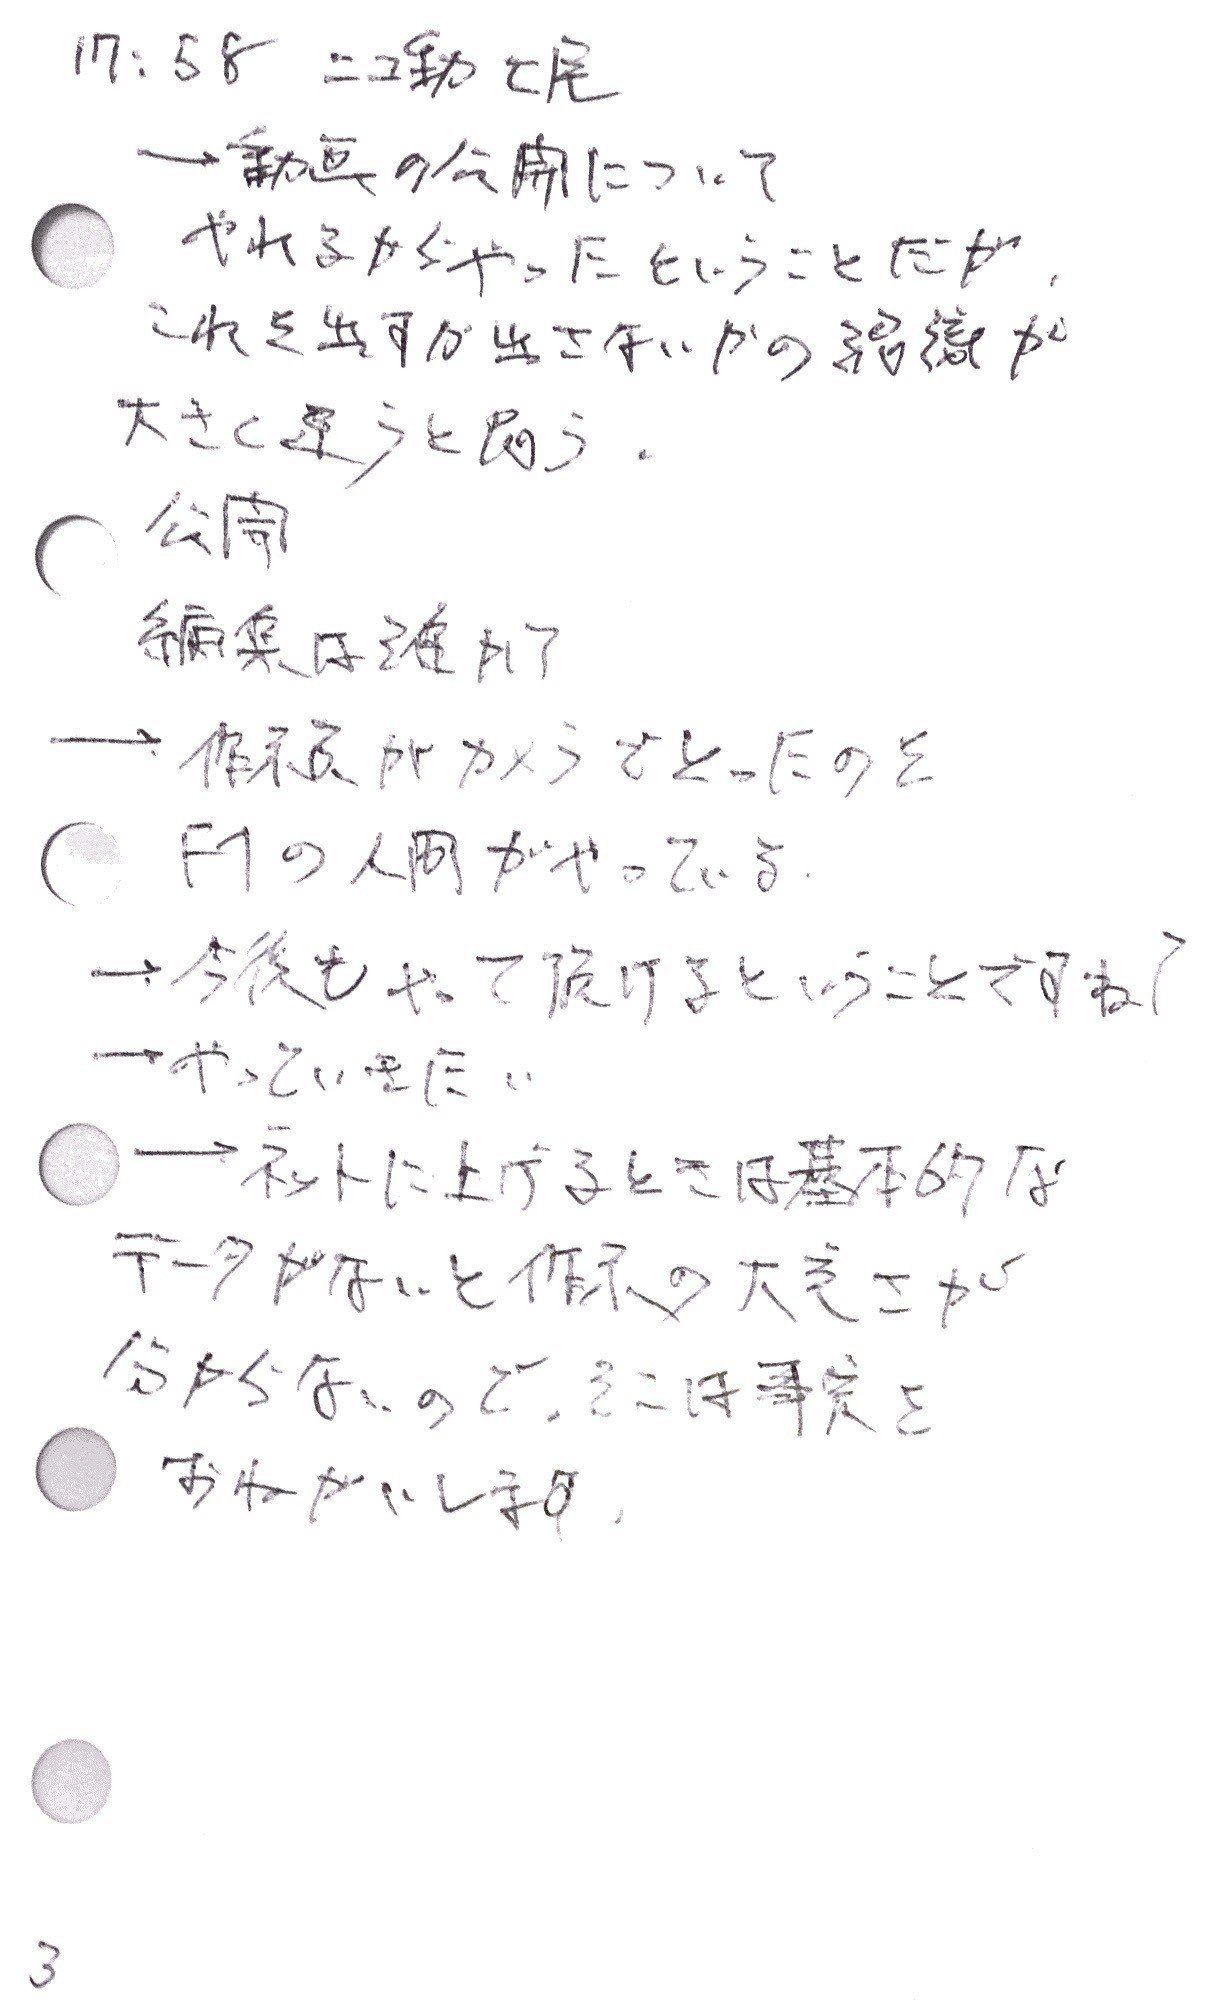 17:58 ニコ動 七尾
→動画の公開について
やれるからやったということだが、
これを出すか出さないかの認識が
大きく違うと思う。
公開
編集は誰か?
→作業員がカメラでとったのを
F1の人間がやっている.
→今後もやって頂けるということですね?
→やっていきたい
→ネットに上げるときは基本的な
データがないと作業の大変さが
分からないので、そこは事実を
おねがいします.
3